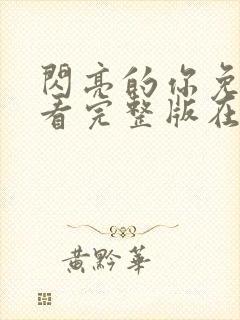 閃亮的你免
看完整版在
黃黔華